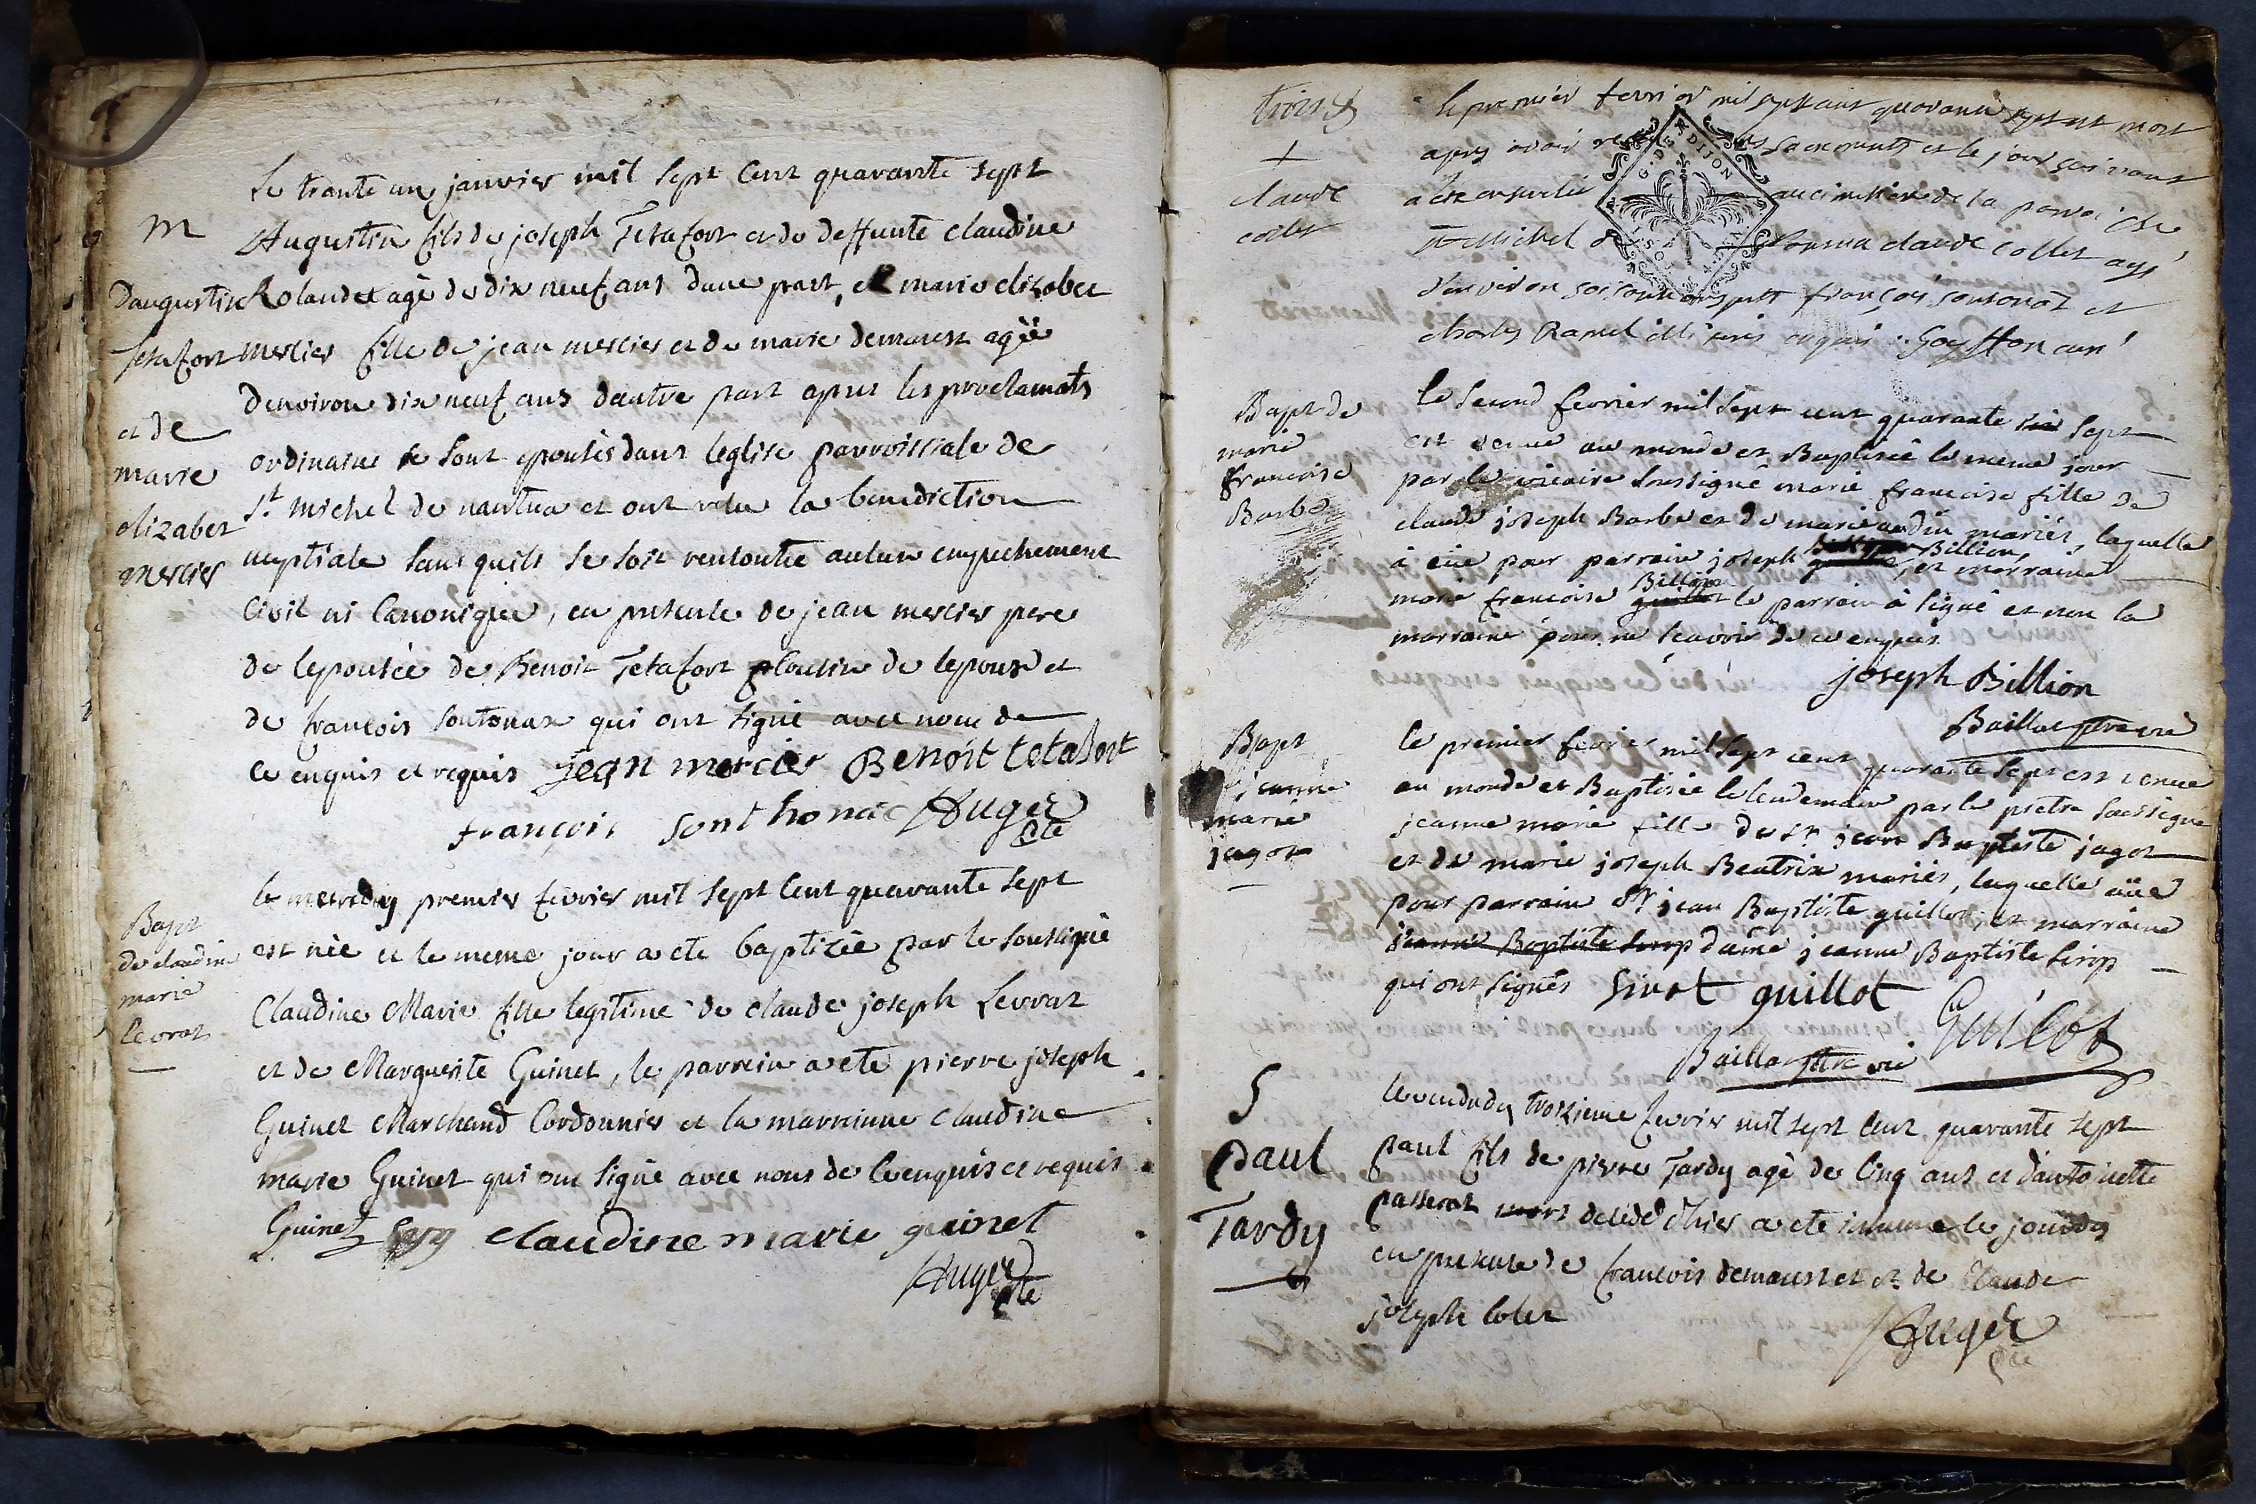 m
D'augustin
Tetafort
et de
marie
elizabet
mercier
Le trante un janvier mil sept cent quarante sept
Augustin fils de joseph Tetafort et de deffunte claudine
Rolandet agé de dix neuf ans dune part, et marie elizabet
mercier fille de jean mercier et de marie demourex agée
denviron dix neuf ans dautre part apres les proclamats
ordinaires se sont epousés dans leglise parroissiale de
St. michel de nantua et ont recu la benediction
nuptiale sans quils se soit rencontré aucun empechement
Civil ni Canonique, en presence de jean mercier pere
de lepousée de Benoit Tetafort de lepoux et
de francois sontonax qui ont signé avec nous de
ce enquis et requis jean mercier Benoit tetafort
françois sonthonac Auger
pte
Bapt
de claudine
marie
levrat
le mercredy premier fevrier mil sept cent quarante sept
est née et le meme jour a ete baptizée par le soussigné
Claudine Marie fille legitime de claude joseph Levrat
et de Marguerite Guinet, le parrein a ete pierre joseph
Guinet Marchand Cordonnier et la marreinne Claudine
marie Guinet qui ont signé avec nous de ce enquis et requis
Guinet claudine marie guinet
Auger
pte
claude
collet
le premier fevrier mil sept cent quarante sept est mort
apres avoir sacrements et le jour suivant
a ete ensevelit au cimetiere de la paroisse
St Michel de claude Collet agé
d'environ soisante françois sontonax et
charles Ramel enquis Goyffon curé
G. DE DIJON
Bapt de
marie
francoise
Barbe
le second fevrier mil sept cent quarante six sept
est venue au monde et Baptisée le meme jour
par le vicaire soussigné marie francoise fille de
claude joseph Barbe et de marie mariés, laquelle
à eüe pour parrain joseph Billion, et marraine
marie francoise Billion le parrain à signé et non la
marraine pour ne sçavoir de ce enquis
joseph Billion
Baillat ptre vic
Bapt
jeanne
marie
jagot
le premier fevrier mil sept cent quarante sept est venue
au monde et Baptisée le lendemain par le pretre soussigné
jeanne marie fille du sr. jean Baptiste jagot
et de marie joseph Beatrix mariés, laquelle a eüe
pour parrain Sr jean Baptiste guillot, et marraine
jeanne Baptiste Sirop dame jeanne Baptiste Sirop
qui ont signés Sirot guillot
Baillat ptre vic Guillot
S
Paul
Tardy
le vendredy troisieme fevrier mil sept cent quarante sept
paul fils de pierre Tardy agé de cinq ans et d'antoinette
passerat mort decedé hier a ete inhumé le jourdhuy
en presence de francois demourex et de Claude
joseph Colet
Auger
pte